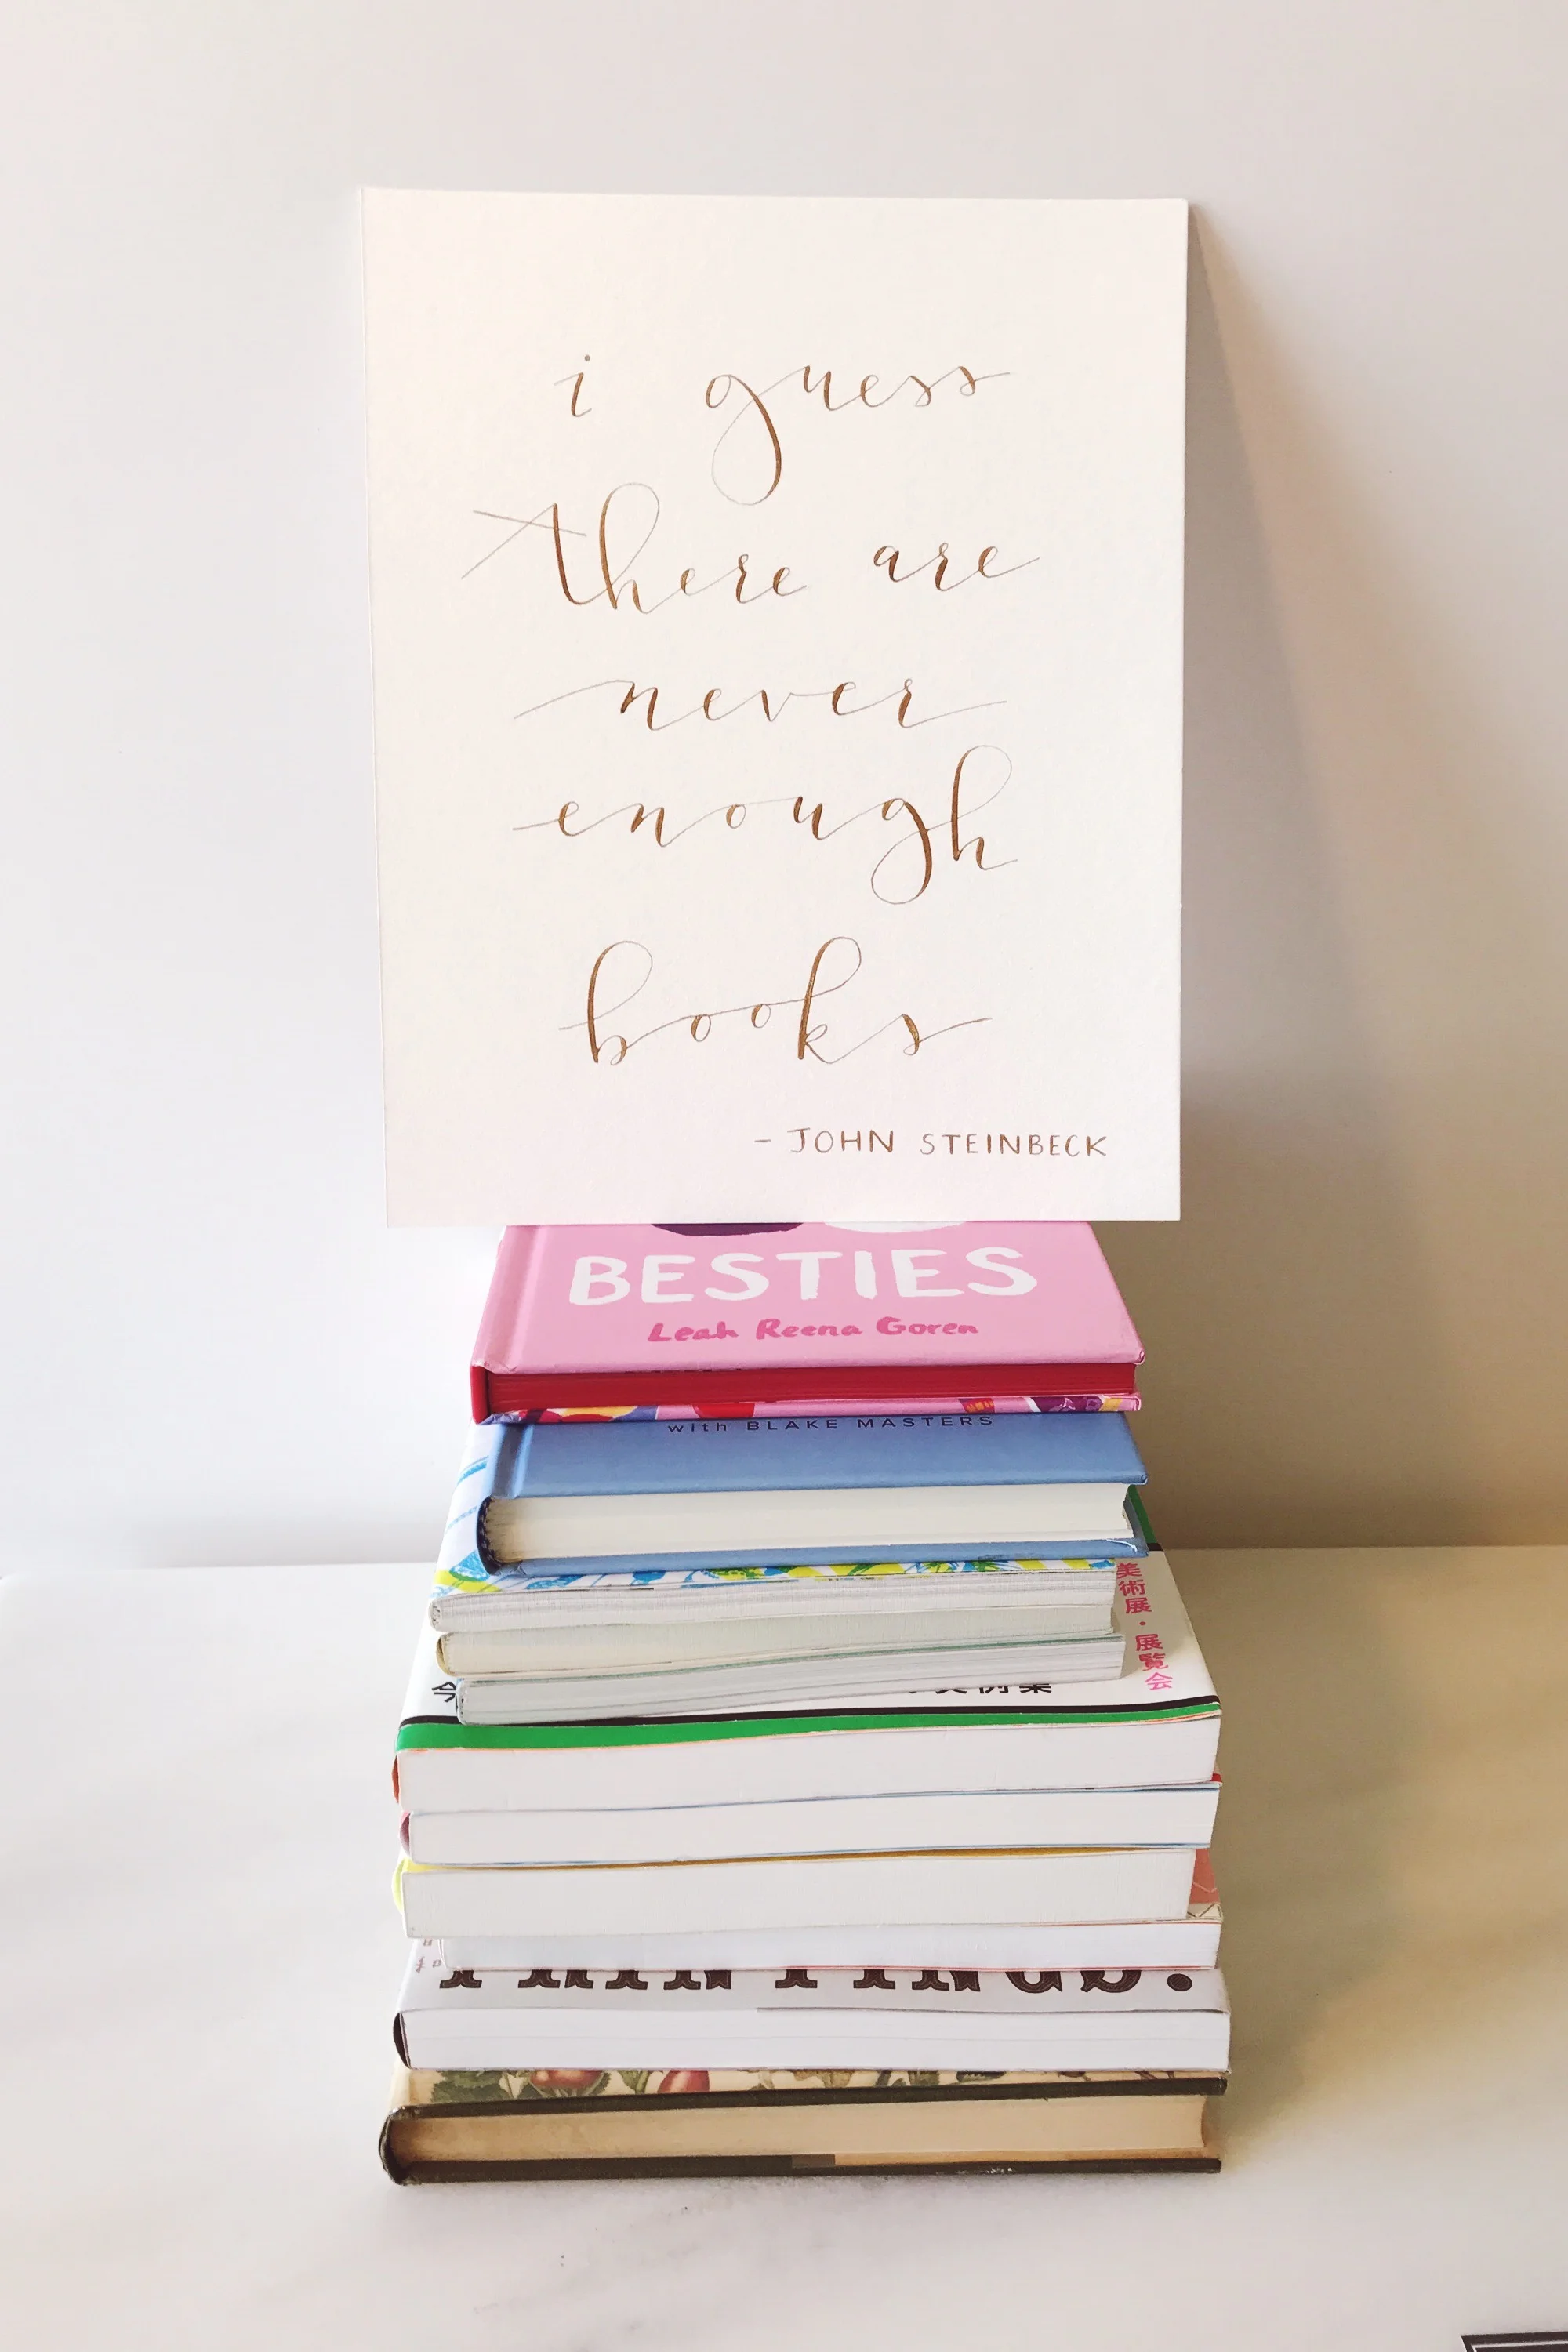 i guess
there are
never
enough
books
- JOHN STEINBECK
BESTIES
Leah Reena Goren
with BLAKE MASTERS
美術展・展覧会